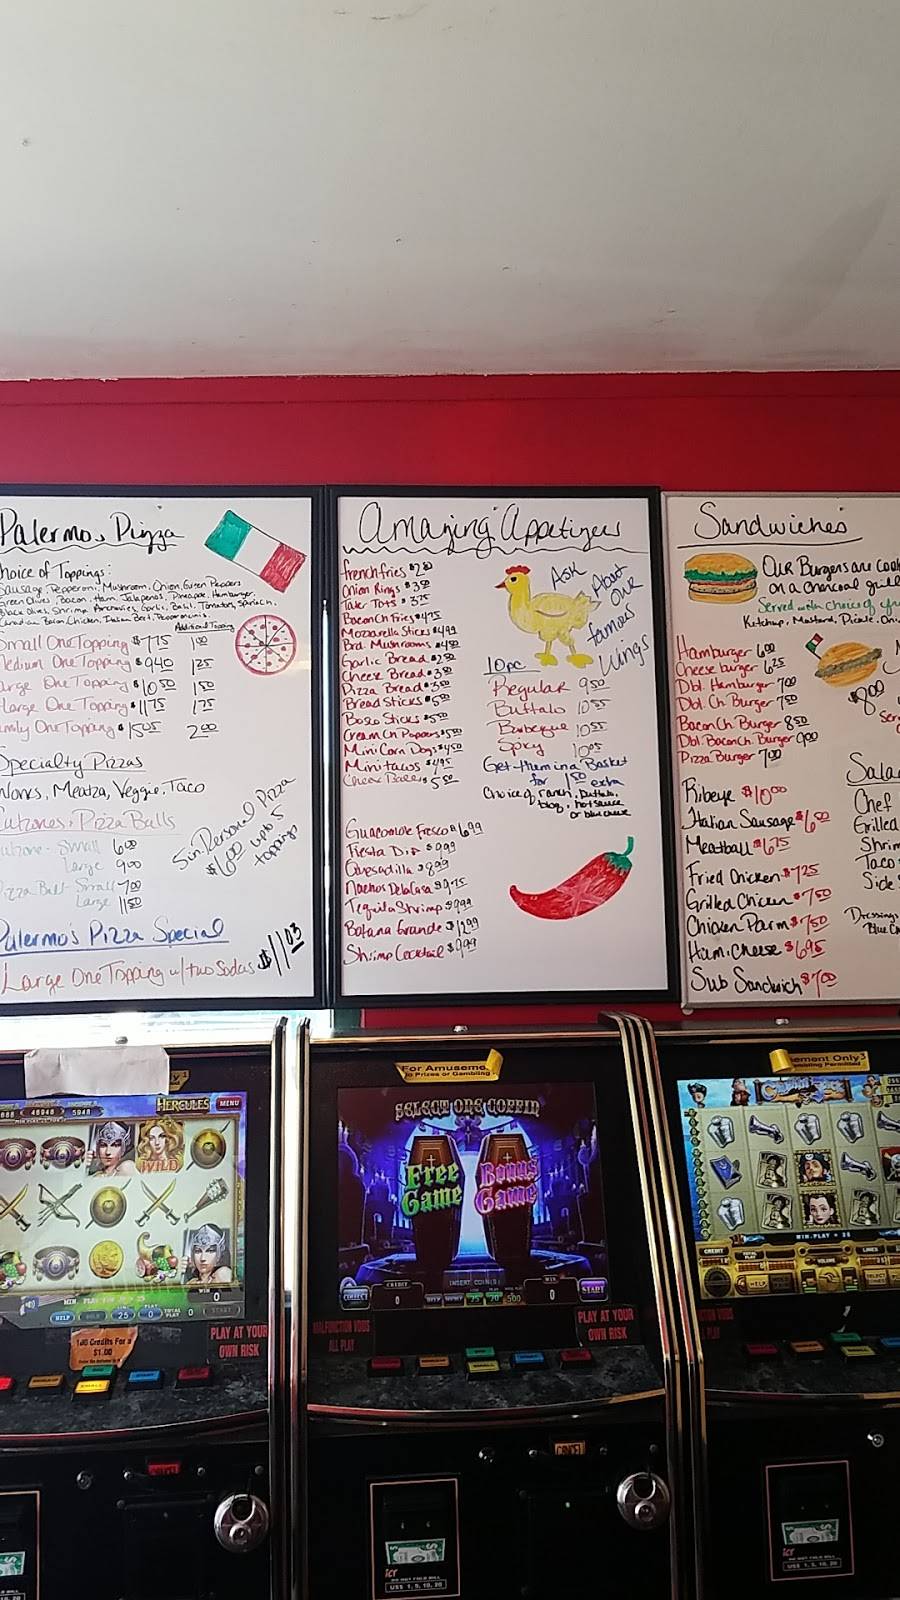 Palermo's Pizza
Choice of Toppings:
Sausage, Pepperoni, Mushroom, Onion, Green Peppers
Green Olives, Bacon, Ham, Jalapenos, Pineapple, Hamburger,
Black Olives, Shrimp, Anchovies, Garlic, Basil, Tomatoes, Spinach,
Canadian Bacon, Chicken, Italian Beef, Pepperoncini
Additional Topping
Small One Topping $7.75 1.00
Medium One Topping $9.40 1.25
Large One Topping $10.50 1.50
Xlarge One Topping $11.75 1.75
Family One Topping $15.05 2.00
Specialty Pizzas
Works, Meatza, Veggie, Taco
Calzones, Pizza Balls
Calzone - Small 6.00
Large 9.00
Pizza Ball - Small 7.00
Large 11.50
5 in. Personal Pizza
$6.00 up to 5
toppings
Palermo's Pizza Special
Large One Topping w/ two Sodas $11.03
Amazing Appetizers
french fries $2.80
Onion Rings $3.50
Tater Tots $3.75
Bacon Ch Fries $4.75
Mozzarella Sticks $4.99
Brd. Mushrooms $4.50
Garlic Bread $2.50
Cheese Bread $3.50
Pizza Bread $3.50
Bread Sticks $5.00
Bosco Sticks $5.50
Cream Ch Poppers $5.00
Mini Corn Dogs $4.50
Mini tacos $4.95
Cheese Balls 5.50
Ask About Our famous Wings
10 pc.
Regular 9.50
Buffalo 10.55
Barbeque 10.55
Spicy 10.05
Get them in a Basket
for 1.50 extra
Choice of ranch, buffalo,
bbq, hot sauce
or blue cheese
Guacomole Fresco $6.99
Fiesta Dip $9.99
Quesadilla $8.99
Nachos De La Casa $9.75
Tequila Shrimp $9.99
Botana Grande $12.99
Shrimp Cocktail $9.99
Sandwiches
Our Burgers are cook
on a charcoal grill
Served with choice of
Ketchup, Mustard, Pickle, On
Hamburger 6.00
Cheese burger 6.25
Dbl. Hamburger 7.00
Dbl. Ch. Burger 7.50
Bacon Ch. Burger 8.50
Dbl. Bacon Ch. Burger 9.00
Pizza Burger 7.00
$8.00
Ribeye $10.00
Italian Sausage $6.50
Meatball $6.75
Fried Chicken $7.25
Grilled Chicken $7.50
Chicken Parm $7.50
Ham & Cheese $6.95
Sub Sandwich $7.00
Salad
Chef
Grilled
Shrim
Taco
Side S
Dressings
Blue Ch
HERCULES
MENU
46948
5948
WILD
HELP
25
0
WIN
0
START
100 Credits For a
$1.00
PLAY AT YOUR
OWN RISK
For Amuseme
No Prizes or Gambling
SELECT ONE COFFIN
Free
Game
Bonus
Game
INSERT COIN(S)
COLLECT
CREDIT
0
WIN
0
START
MALFUNCTION VOIDS
ALL PLAY
PLAY AT YOUR
OWN RISK
ement Only
mbling Permitted
MIN. PLAY = 25
CREDIT
LINES
HELP
CANCEL
ict
US$ 1, 5, 10, 20
ict
US$ 1, 5, 10, 20